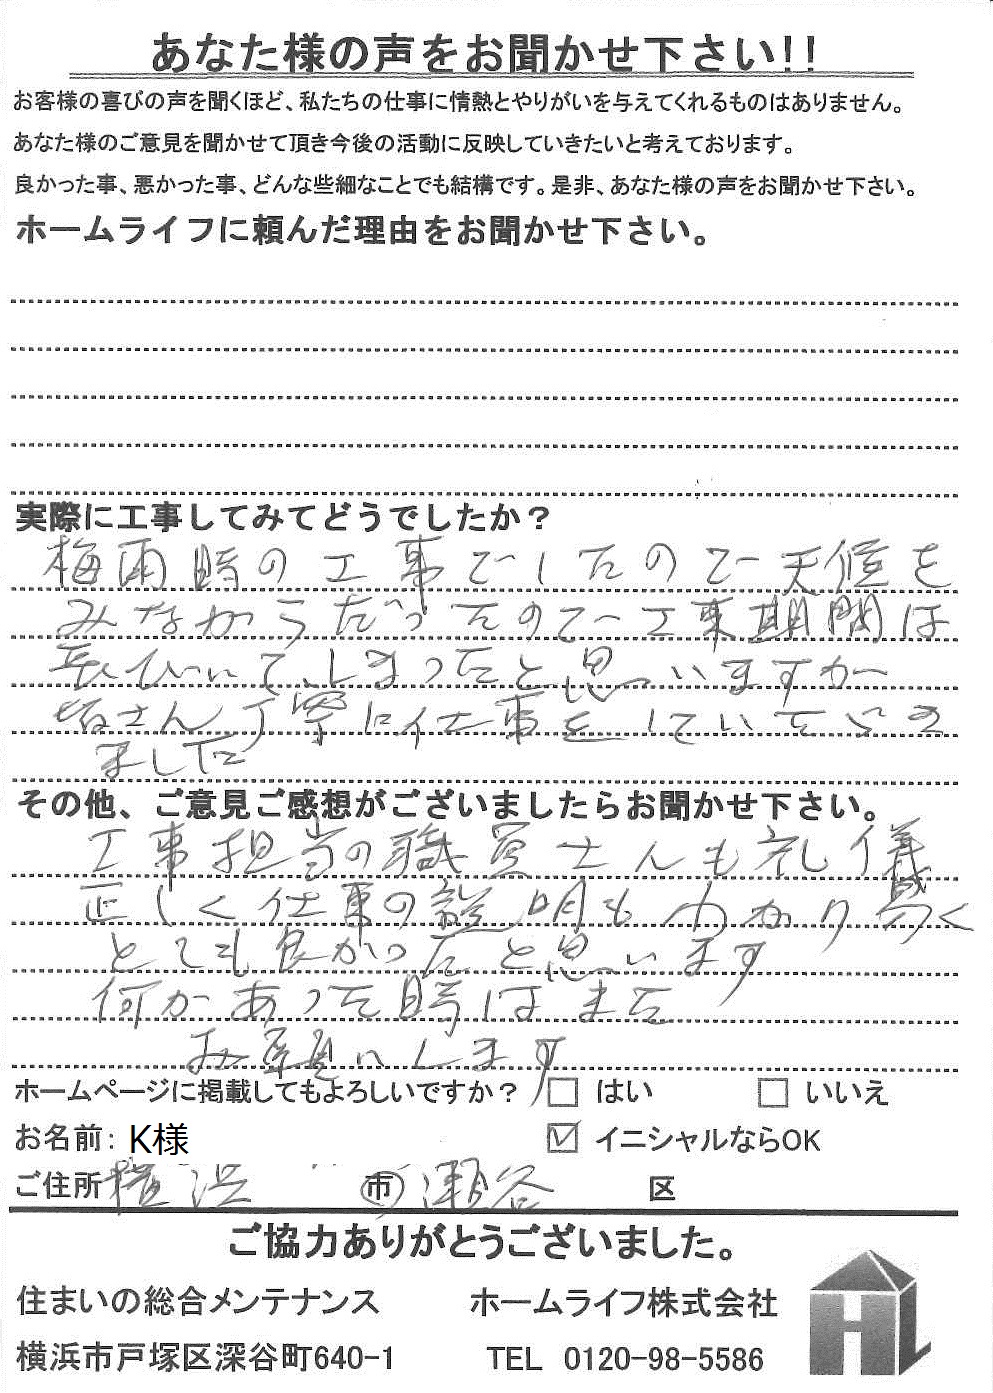 あなた様の声をお聞かせ下さい!!
お客様の喜びの声を聞くほど、私たちの仕事に情熱とやりがいを与えてくれるものはありません。
あなた様のご意見を聞かせて頂き今後の活動に反映していきたいと考えております。
良かった事、悪かった事、どんな些細なことでも結構です。是非、あなた様の声をお聞かせ下さい。
ホームライフに頼んだ理由をお聞かせ下さい。
実際に工事してみてどうでしたか？
梅雨時の工事でしたので天候を
みながらだったので工事期間は
長びいてしまったと思いますが
皆さん丁寧に仕事をしていてらき
ました
その他、ご意見ご感想がございましたらお聞かせ下さい。
工事担当の職員さんも礼儀
正しく仕事の説明もわかり易く
とても良かったと思います
何かあった時はまた
お願いします
ホームページに掲載してもよろしいですか？ □ はい □ いいえ
お名前: K様 ☑ イニシャルならOK
ご住所 横浜 市 瀬谷 区
ご協力ありがとうございました。
住まいの総合メンテナンス ホームライフ株式会社
横浜市戸塚区深谷町640-1 TEL 0120-98-5586
HL